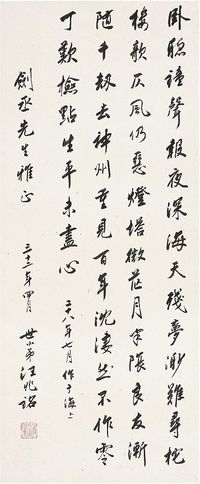 卧聽鐘聲報夜深海天殘夢渺難尋柁
樓欹仄風仍惡燈塔微茫月半陰良友漸
隨千劫去神州重見百年沈淒然不作零
丁歎檢點生平未盡心
二十八年七月作于海上
劍丞先生雅正
三十二年四月 世小弟汪兆銘